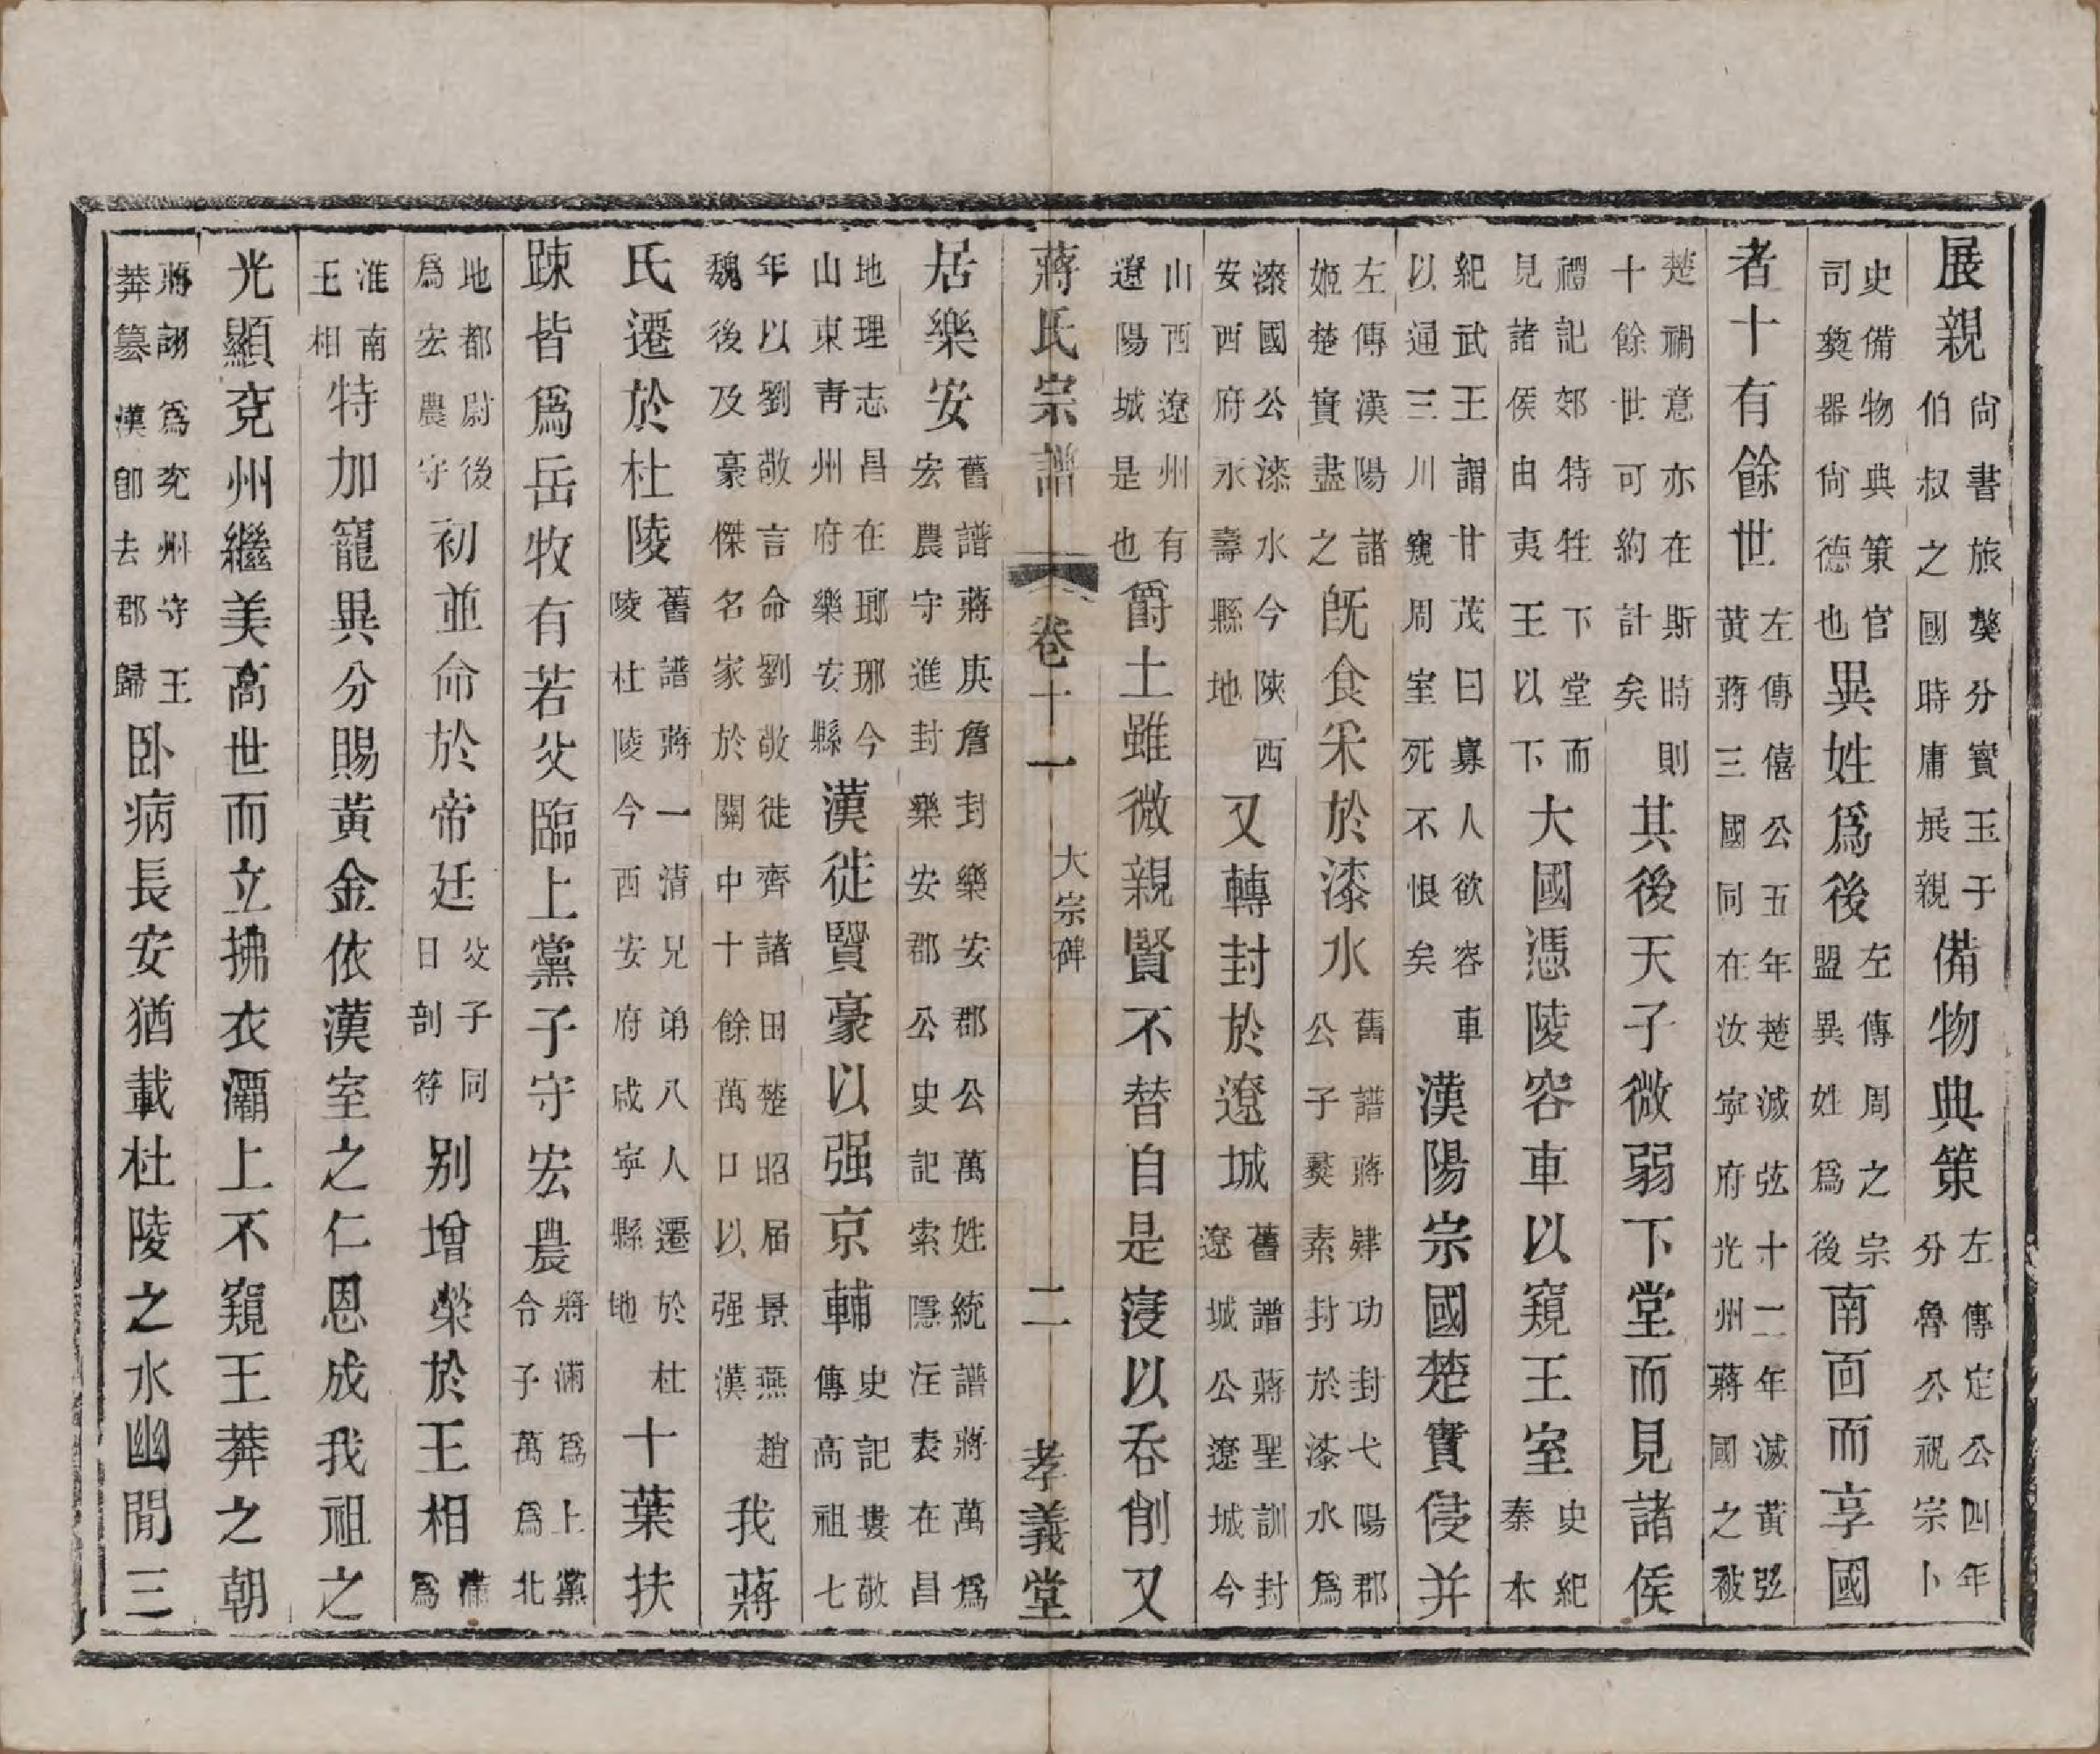 展親尙書旅獒分寶玉于伯叔之國時庸展親備物典策左傳定公四年分魯公祝宗卜
史備物典策官司奠器尙德也異姓爲後左傳周之宗盟異姓爲後南面而享國
者十有餘世左傳僖公五年楚滅弦十二年滅黃弦黃蔣三國同在汝寧府光州蔣國之被
楚禍意亦在斯時則十餘世可約計矣其後天子微弱下堂而見諸侯
禮記郊特牲下堂而見諸侯由夷王以下大國憑陵容車以窺王室史紀秦本
紀武王謂甘茂曰寡人欲容車以通三川窺周室死不恨矣漢陽宗國楚實侵并
左傳漢陽諸姬楚實盡之旣食采於漆水舊譜蔣肄功封弋陽郡公子彛素封於漆水爲
漆國公漆水今陝西安西府永壽縣地又轉封於遼城舊譜蔣聖訓封遼城公遼城今
山西遼州有遼陽城是也爵土雖微親賢不替自是寖以吞削又
蔣氏宗譜 卷十一 大宗碑 二 孝義堂
居樂安舊譜蔣庚詹封樂安郡公萬姓統譜蔣萬爲宏農守進封樂安郡公史記索隱注表在昌
地理志昌在瑯琊今山東靑州府樂安縣漢徙賢豪以强京輔史記婁敬傳高祖七
年以劉敬言命劉敬徙齊諸田楚昭屈景燕趙魏後及豪傑名家於關中十餘萬口以强漢我蔣
氏遷於杜陵舊譜蔣一淸兄弟八人遷於杜陵杜陵今西安府咸寧縣地十葉扶
踈皆爲岳牧有若父臨上黨子守宏農蔣滿爲上黨令子萬爲北
地都尉後爲宏農守初並命於帝廷父子同日剖符別增榮於王相滿爲
淮南王相特加寵異分賜黃金依漢室之仁恩成我祖之
光顯兗州繼美高世而立拂衣灞上不窺王莽之朝
蔣詡爲兗州守王莽篡漢卽去郡歸臥病長安猶載杜陵之水幽閒三